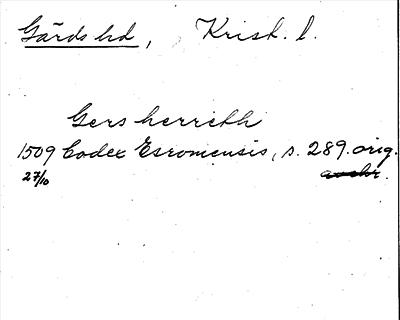 Gärds hd, Krist. l.
Gers herreth
1509 Codex Esromensis, s. 289. orig.
27/10 avskr.